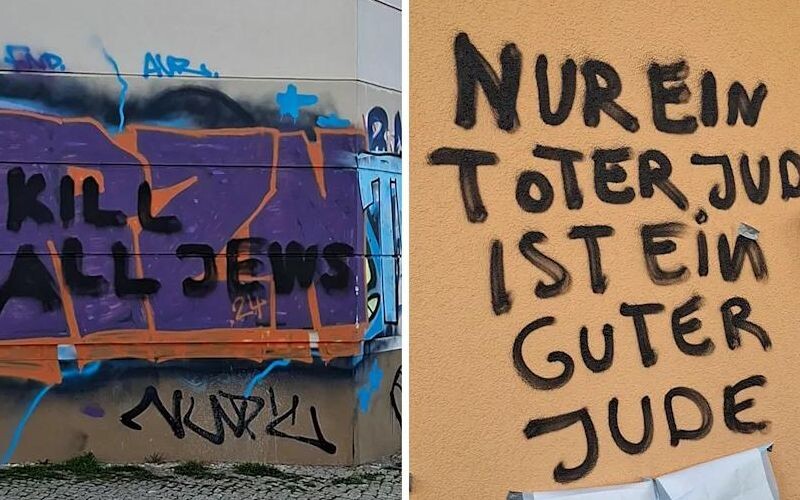 AUR
KILL
ALL JEWS
24
NUR EIN
TOTER JUD
IST EIN
GUTER
JUDE